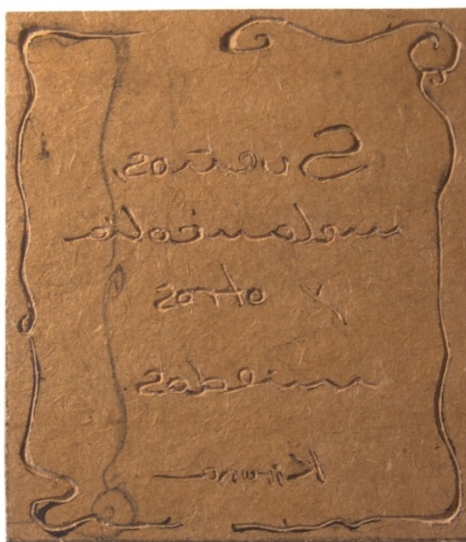 Sueños,
melancolía
y otros
miedos.